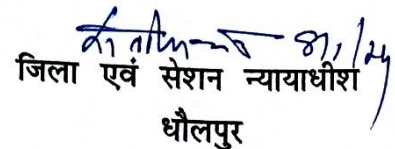 जिला एवं सेशन न्यायाधीश
धौलपुर